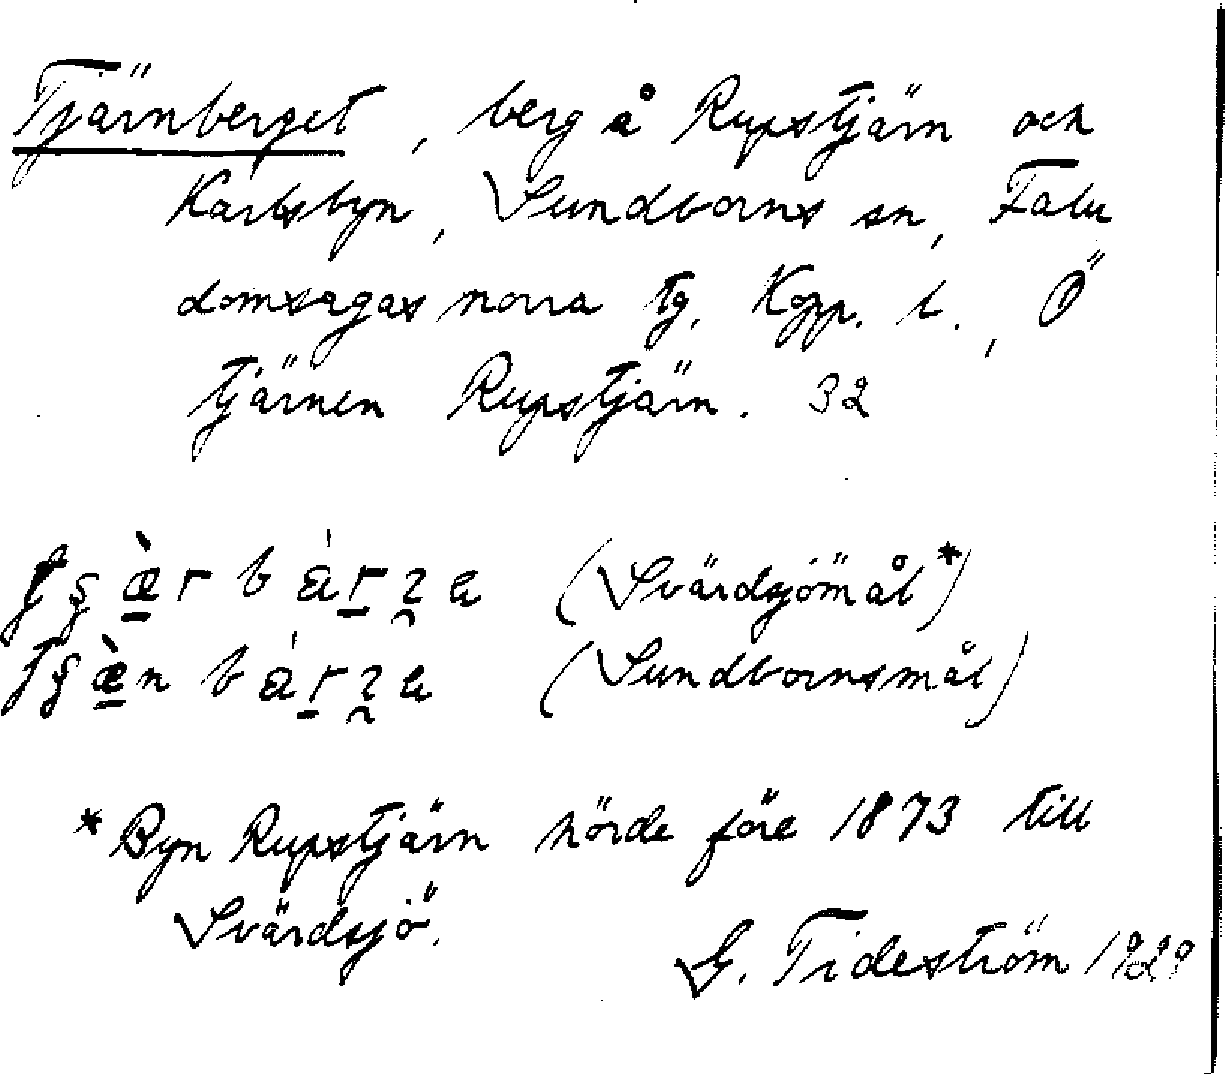 Tjärnberget, berg å Rupstjärn och
Karlsbyn, Sundborns sn, Falu
domsagas norra tg, Kopp. l., Ö
tjärnen Rupstjärn. 32
(Svärdsjömål*)
(Sundbornsmål)
* Byn Rupstjärn hörde före 1873 till
Svärdsjö.
G. Tideström 1929